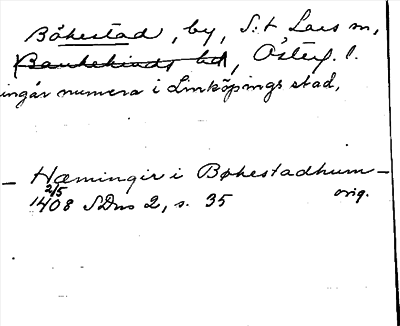 Bökestad, by, S:t Lars sn,
Bankekinds hd, Österg. l.
ingår numera i Linköpings stad.
– Hæmingir i Bøkestadhum –
orig.
2/5
1408 SDns 2, s. 35